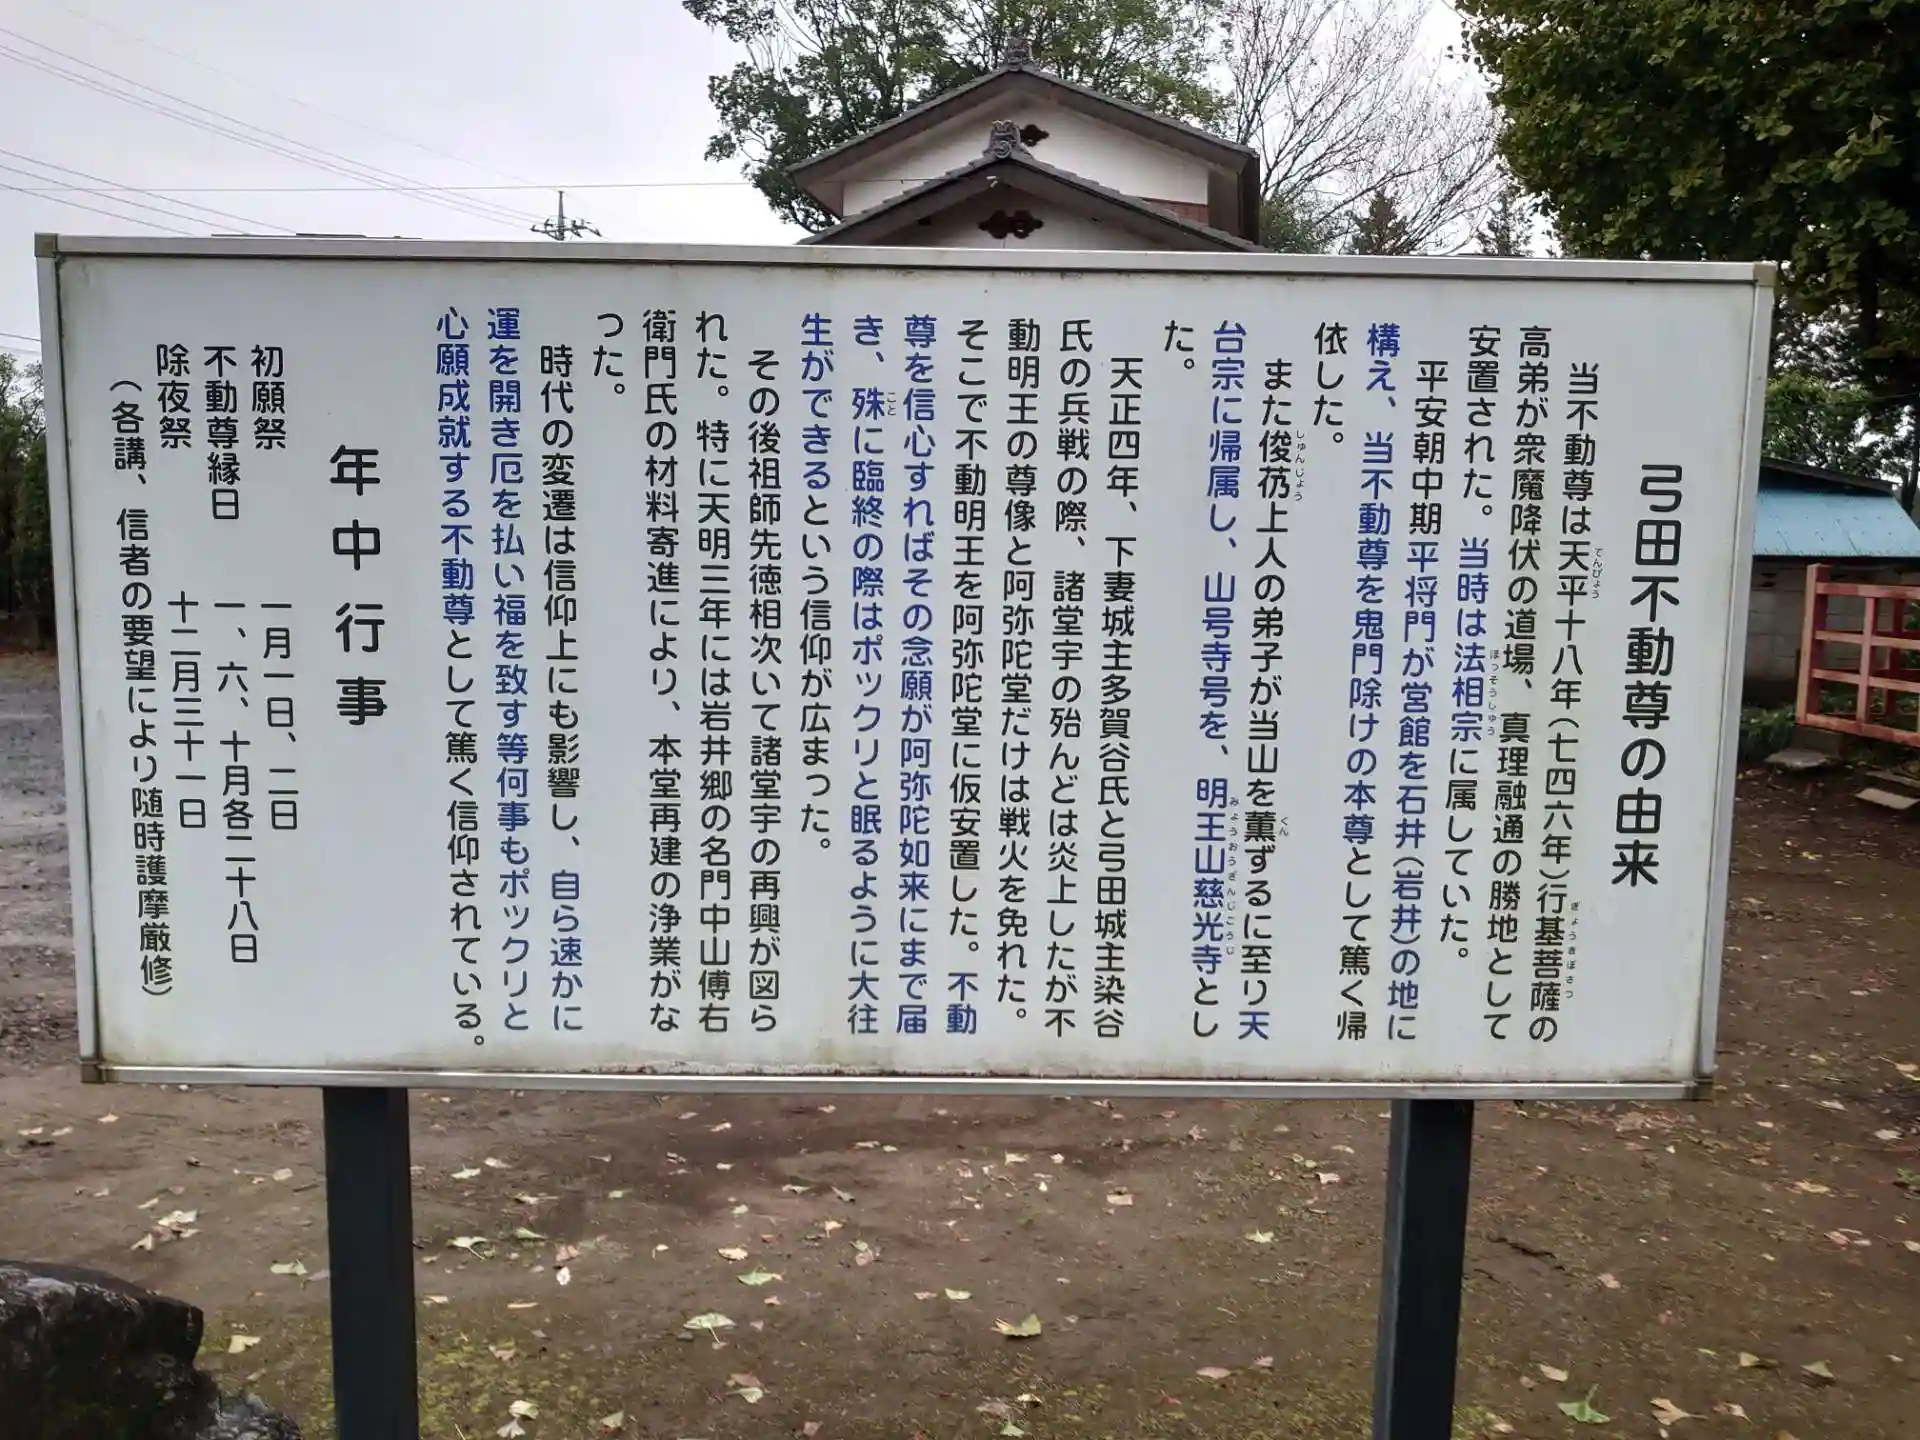 弓田不動尊の由来
当不動尊は天平十八年（七四六年）行基菩薩の
高弟が衆魔降伏の道場、真理融通の勝地として
安置された。当時は法相宗に属していた。
平安朝中期平将門が営館を石井（岩井）の地に
構え、当不動尊を鬼門除けの本尊として篤く帰
依した。
また俊芿上人の弟子が当山を薫ずるに至り天
台宗に帰属し、山号寺号を、明王山慈光寺とし
た。
天正四年、下妻城主多賀谷氏と弓田城主染谷
氏の兵戦の際、諸堂宇の殆んどは炎上したが不
動明王の尊像と阿弥陀堂だけは戦火を免れた。
そこで不動明王を阿弥陀堂に仮安置した。不動
尊を信心すればその念願が阿弥陀如来にまで届
き、殊に臨終の際はポックリと眠るように大往
生ができるという信仰が広まった。
その後祖師先徳相次いで諸堂宇の再興が図ら
れた。特に天明三年には岩井郷の名門中山傅右
衛門氏の材料寄進により、本堂再建の浄業がな
った。
時代の変遷は信仰上にも影響し、自ら速かに
運を開き厄を払い福を致す等何事もポックリと
心願成就する不動尊として篤く信仰されている。
年中行事
初願祭 一月一日、二日
不動尊縁日 一、六、十月各二十八日
除夜祭 十二月三十一日
（各講、信者の要望により随時護摩厳修）